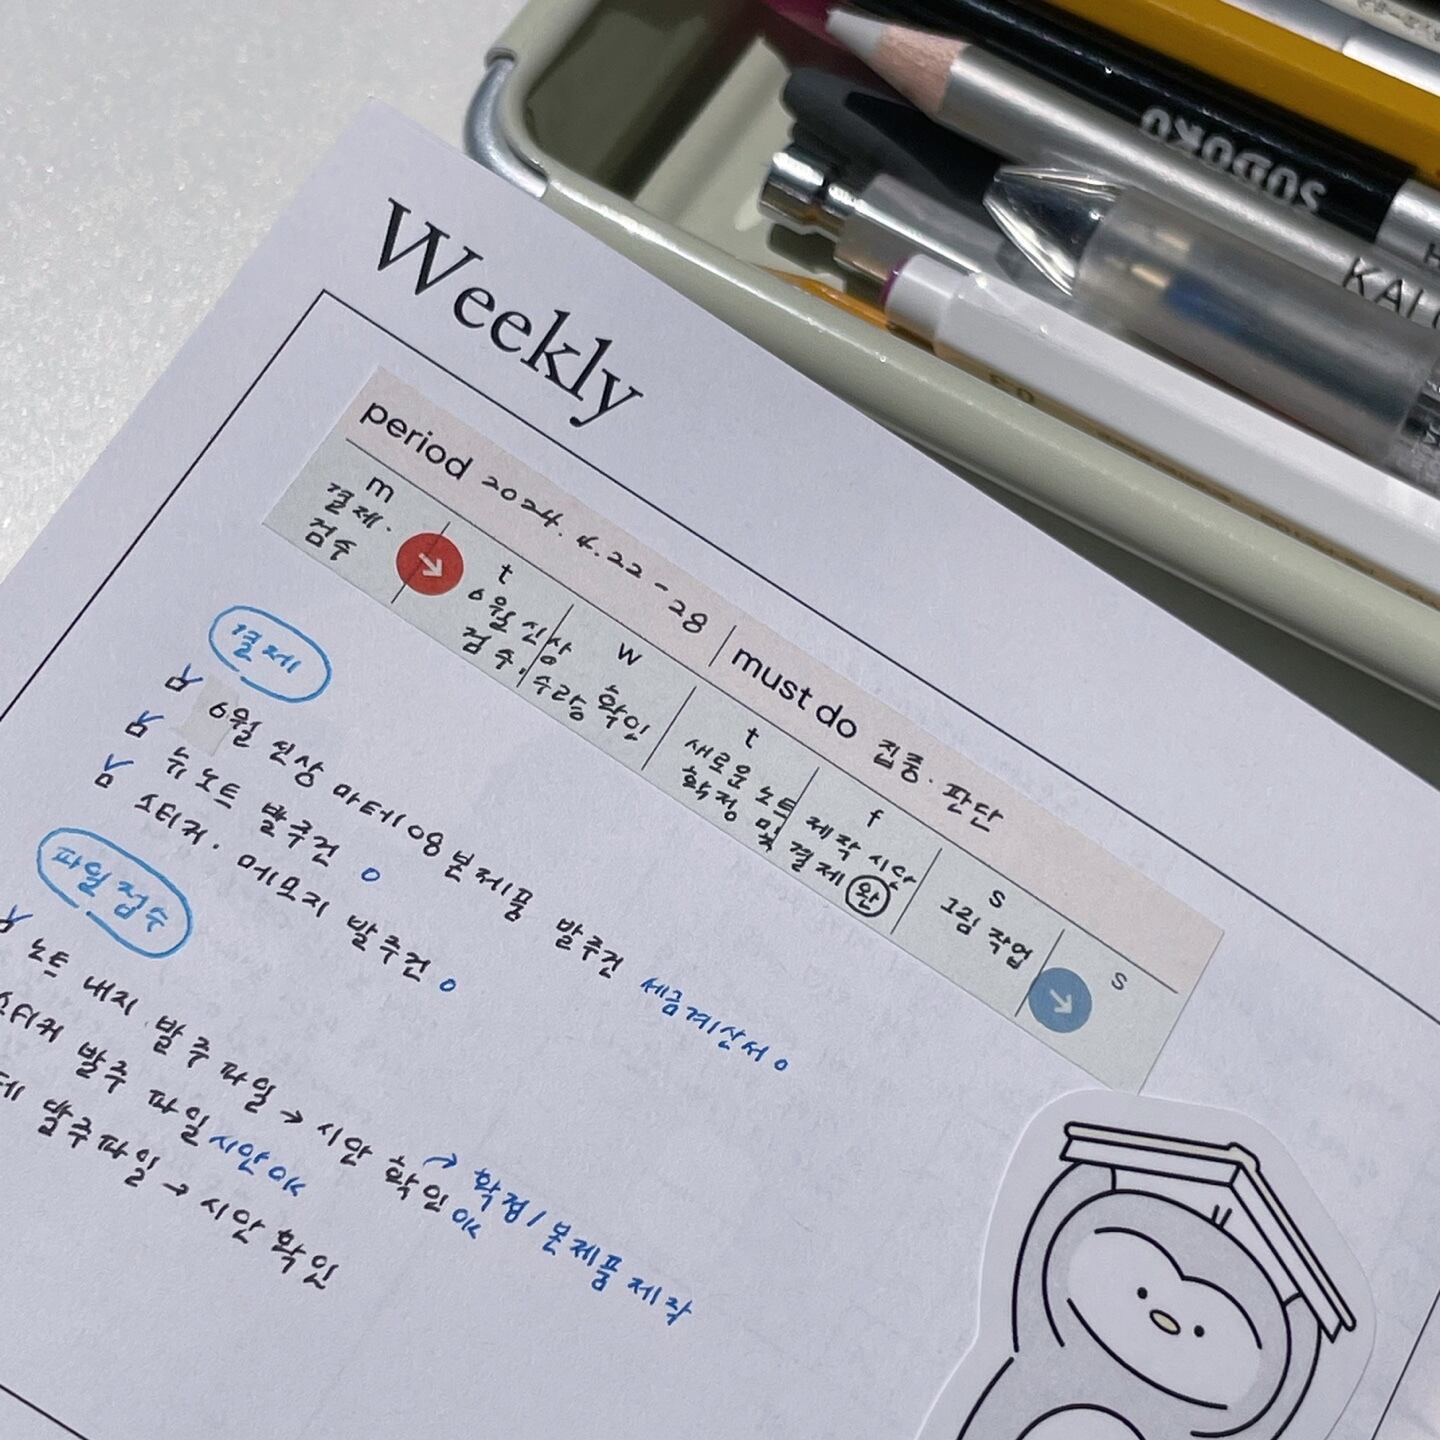 Weekly
period 2024. 4. 22 - 28 must do 집중. 판단
m
결제.
검수
t
6월 신상
검수.
w
수량 확인
t
새로운 노트
확정 및
f
제작 시안
결제 완
s
그림 작업
s
결제
6월 신상 마테 108 본제품 발주건 세금계산서 o
뉴 노트 발주건 o
스티커. 메모지 발주건 o
파일 검수
노트 내지 발주 파일 → 시안 확인 ok → 확정 / 본제품 제작
스티커 발주 파일 시안 ok
발주파일 → 시안 확인
SUDOKU